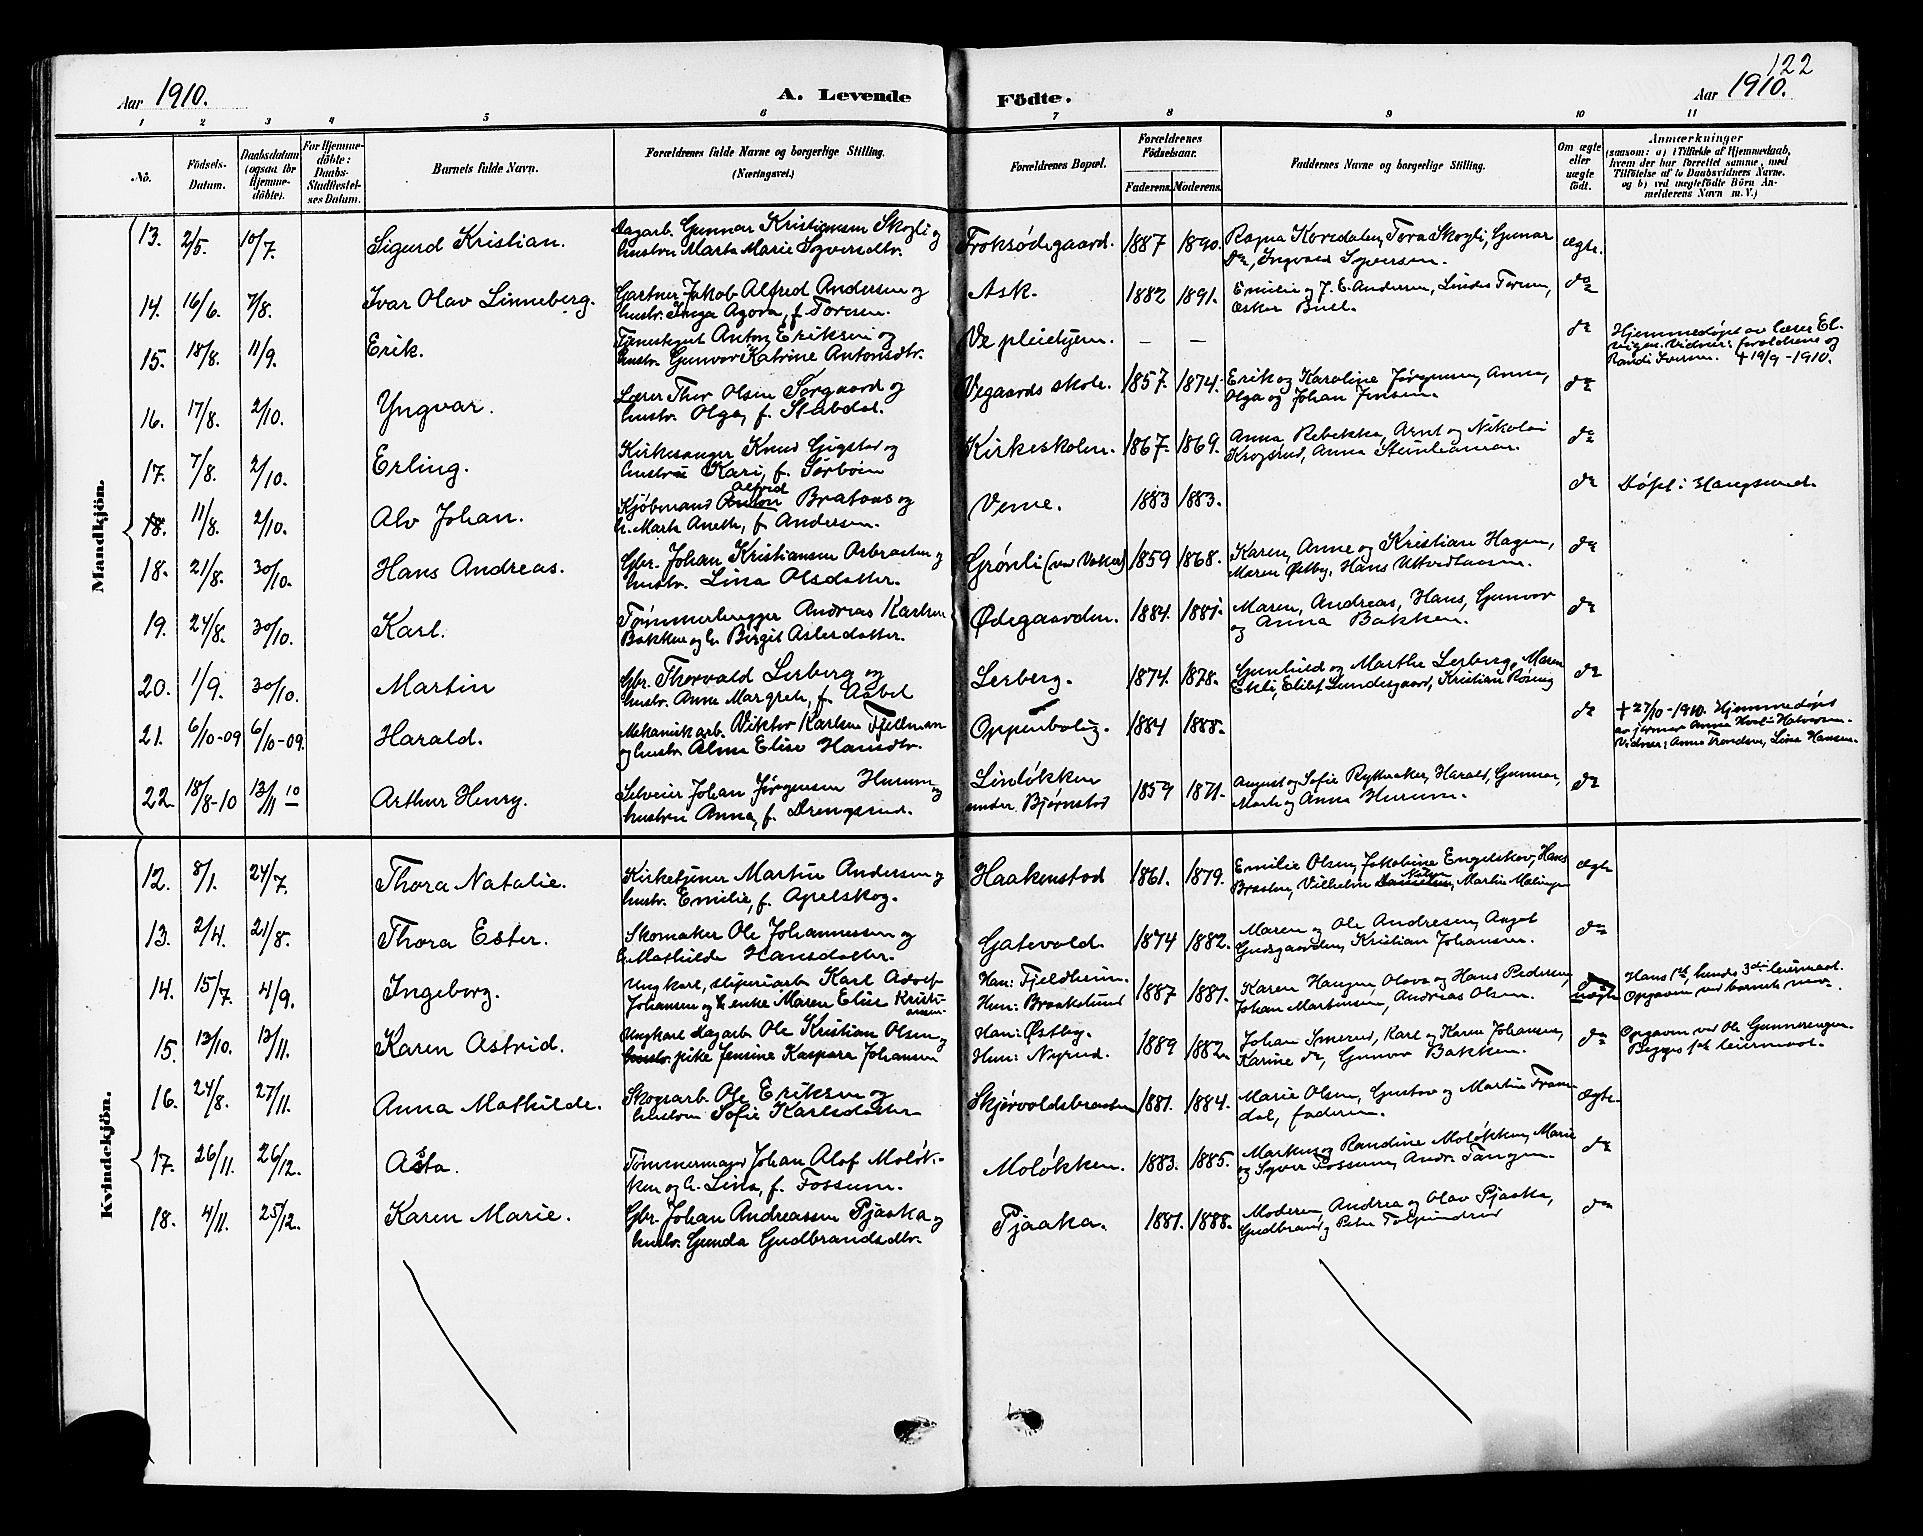 122
Aar 1910. A. Levende Födte. Aar 1910.
1 2 3 4 5 6 7 8 9 10 11
No. Födsels-Datum. Daabsdatum (ogsaa for Hjemmedöbte). For Hjemmedöbte: Daabs-Stadfæstelses Datum. Barnets fulde Navn. Forældrenes fulde Navne og borgerlige Stilling. (Næringsvei.) Forældrenes Bopæl. Forældrenes Födselsaar. Faderens. Moderens. Faddernes Navne og borgerlige Stilling. Om ægte eller uægte födt. Anmærkninger (saasom: a) i Tilfælde af Hjemmedaab, hvem der har forrettet samme, med Tilföielse af to Daabsvidners Navne. og b) ved uægtefödte Börn Anmelderens Navn m. V.)
Mandkjön.
13. 2/5. 10/7. Sigurd Kristian. Dagarb. Gunnar Kristiansen Skogli og Froksødegaard. 1887 1890. Ragna Korsdalen, Tora Skogli, Gunar ægte.
hustru Marta Marie Syversdtr. do, Ingvald Syversen.
14. 16/6. 7/8. Ivar Olav Linneberg. Gartner Jakob Alfred Andersen og Ask. 1882 1891. Emilie og J. E. Andersen, do
hustr. Inga Agora, f. Toresen. Oskar Buel.
15. 18/8. 11/9. Erik. Anton Eriksen og Ve pleiehjem. — — do Hjemmedøpt av lærer
hustr. Gunvor Katrine Antonsdtr. Vidner: forældrene og
Randi Iversen. † 19/9 - 1910.
16. 17/8. 2/10. Yngvar. Lærer Thor Olsen Sørgaard og Vegaards skole. 1857. 1874. Erik og Karoline Jørgensen, Anna, do
hustr. Olga, f. Stabdal. Olga og Johan Jensen.
17. 7/8. 2/10. Erling. Kirkesanger Knud Gigstad og Kirkeskolen. 1867. 1869. Anna, Rebekka, Arnt og Nikolai do
hustru Kari, f. Sørboen Krogsrud, Anna
18. 11/8. 2/10. Alv Johan. Kjøbmand Anton Alfred Brataas og Veme. 1883 1883. do Døpt i Haugsund.
h. Marta Aneth, f. Andersen.
18. 21/8. 30/10. Hans Andreas. Gbr. Johan Kristiansen Asbraaten og Grønli (ved Veker) 1859 1868. Karen, Anne og Kristian Hagen, do
hustr. Lina Olsdatter. Maren Østby, Hans
19. 24/8. 30/10. Karl. Tømmerhugger Andreas Karlsen Ødegaarden. 1884. 1881. Maren, Andreas, Hans, Gunvor do
Bakken og h. Birgit Aslesdatter. og Anna Bakken.
20. 1/9. 30/10. Martin Gbr. Thorvald Lerberg og Lerberg. 1874. 1878. Gunhild og Marthe Lerberg, Maren do
hustr. Anne Margrete, f. Aabel Ekli, Ellef Lundesgaard, Kristian Røsing
21. 6/10-09 6/10-09. Harald. Mekanisk arb. Viktor Karlsen Fjeldman Oppenbolig. 1884 1888. do † 27/10 - 1910. Hjemmedøpt
og hustr. Alma Elise Hansdtr. av jormor Anna
Vidner: Anna Trondsen, Lina Hansen.
22. 18/8-10 13/11 10 Arthur Henry. Selveier Johan Jørgensen Hurum og Linløkken 1859 1871. August og Sofie Rytteraker, Harald, Gunnar, do
hustru Anna, f. Drengsrud. under Bjørnstad Marta og Anna Hurum.
Kvindekjön.
12. 8/1. 24/7. Thora Natalie. Kirketjener Martin Andersen og Haakenstad 1861. 1879. Emilie Olsen, Jakobine Engelskov, Hans ægte
hustr. Emilie, f. Apelskog. Braaten, Vilhelm Danielsen, Martin
13. 2/4. 21/8. Thora Ester. Skomaker Ole Johannessen og Gatevold. 1874 1882. Maren og Ole Andresen, Aagot do
h. Mathilde Hansdatter. Gudsgaarden, Kristian Johansen.
14. 15/7. 4/9. Ingeborg. Ungkar, sliperiarb. Karl Adolf Han: Fjeldheim. 1887 1881. Karen Haugen, Olava og Hans Pedersen, uægte Hans 1ste, hendes 3die leiermaal.
Johansen og enke Maren Elise Kristiansen Hun: Braakelund Johan Martinsen, Andreas Olsen. Opgaven ved barnets mor.
15. 13/10. 13/11. Karen Astrid. Ungkarl dagarb. Ole Kristian Olsen og Han: Østby. 1889 1882. Johan Smerud, Karl og Karen Johansen, do Opgaven ved Ole Gunnerengen.
hustr. pike Jensine Kaspara Johansen Hun: Nyrud. Karine do, Gunvor Bakken. Begges 1ste leiermaal.
16. 24/8. 27/11. Anna Mathilde. Skogsarb. Ole Eriksen og Skjørvoldsbraaten 1881. 1884. Marie Olsen, Gustav og Martin Framdal, faderen. ægte.
hustru Sofie Karlsdatter
17. 26/11. 26/12. Aasta. Johan Alof Moløkken og h. Lina, f. Fossum. Moløkken. 1883. 1885. Markus og Randine Moløkken, Marie do
og Syver Fossum, Andr. Tangen.
18. 4/11. 25/12. Karen Marie. Gbr. Johan Andreassen Pjaaka og Pjaaka. 1881. 1888. Moderen, Andrea og Olav Pjaaka, do
hustr. Gunda Gudbrandsdtr. Gudbrand og Petra